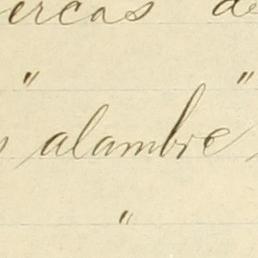 ercas de
" "
alambre
"